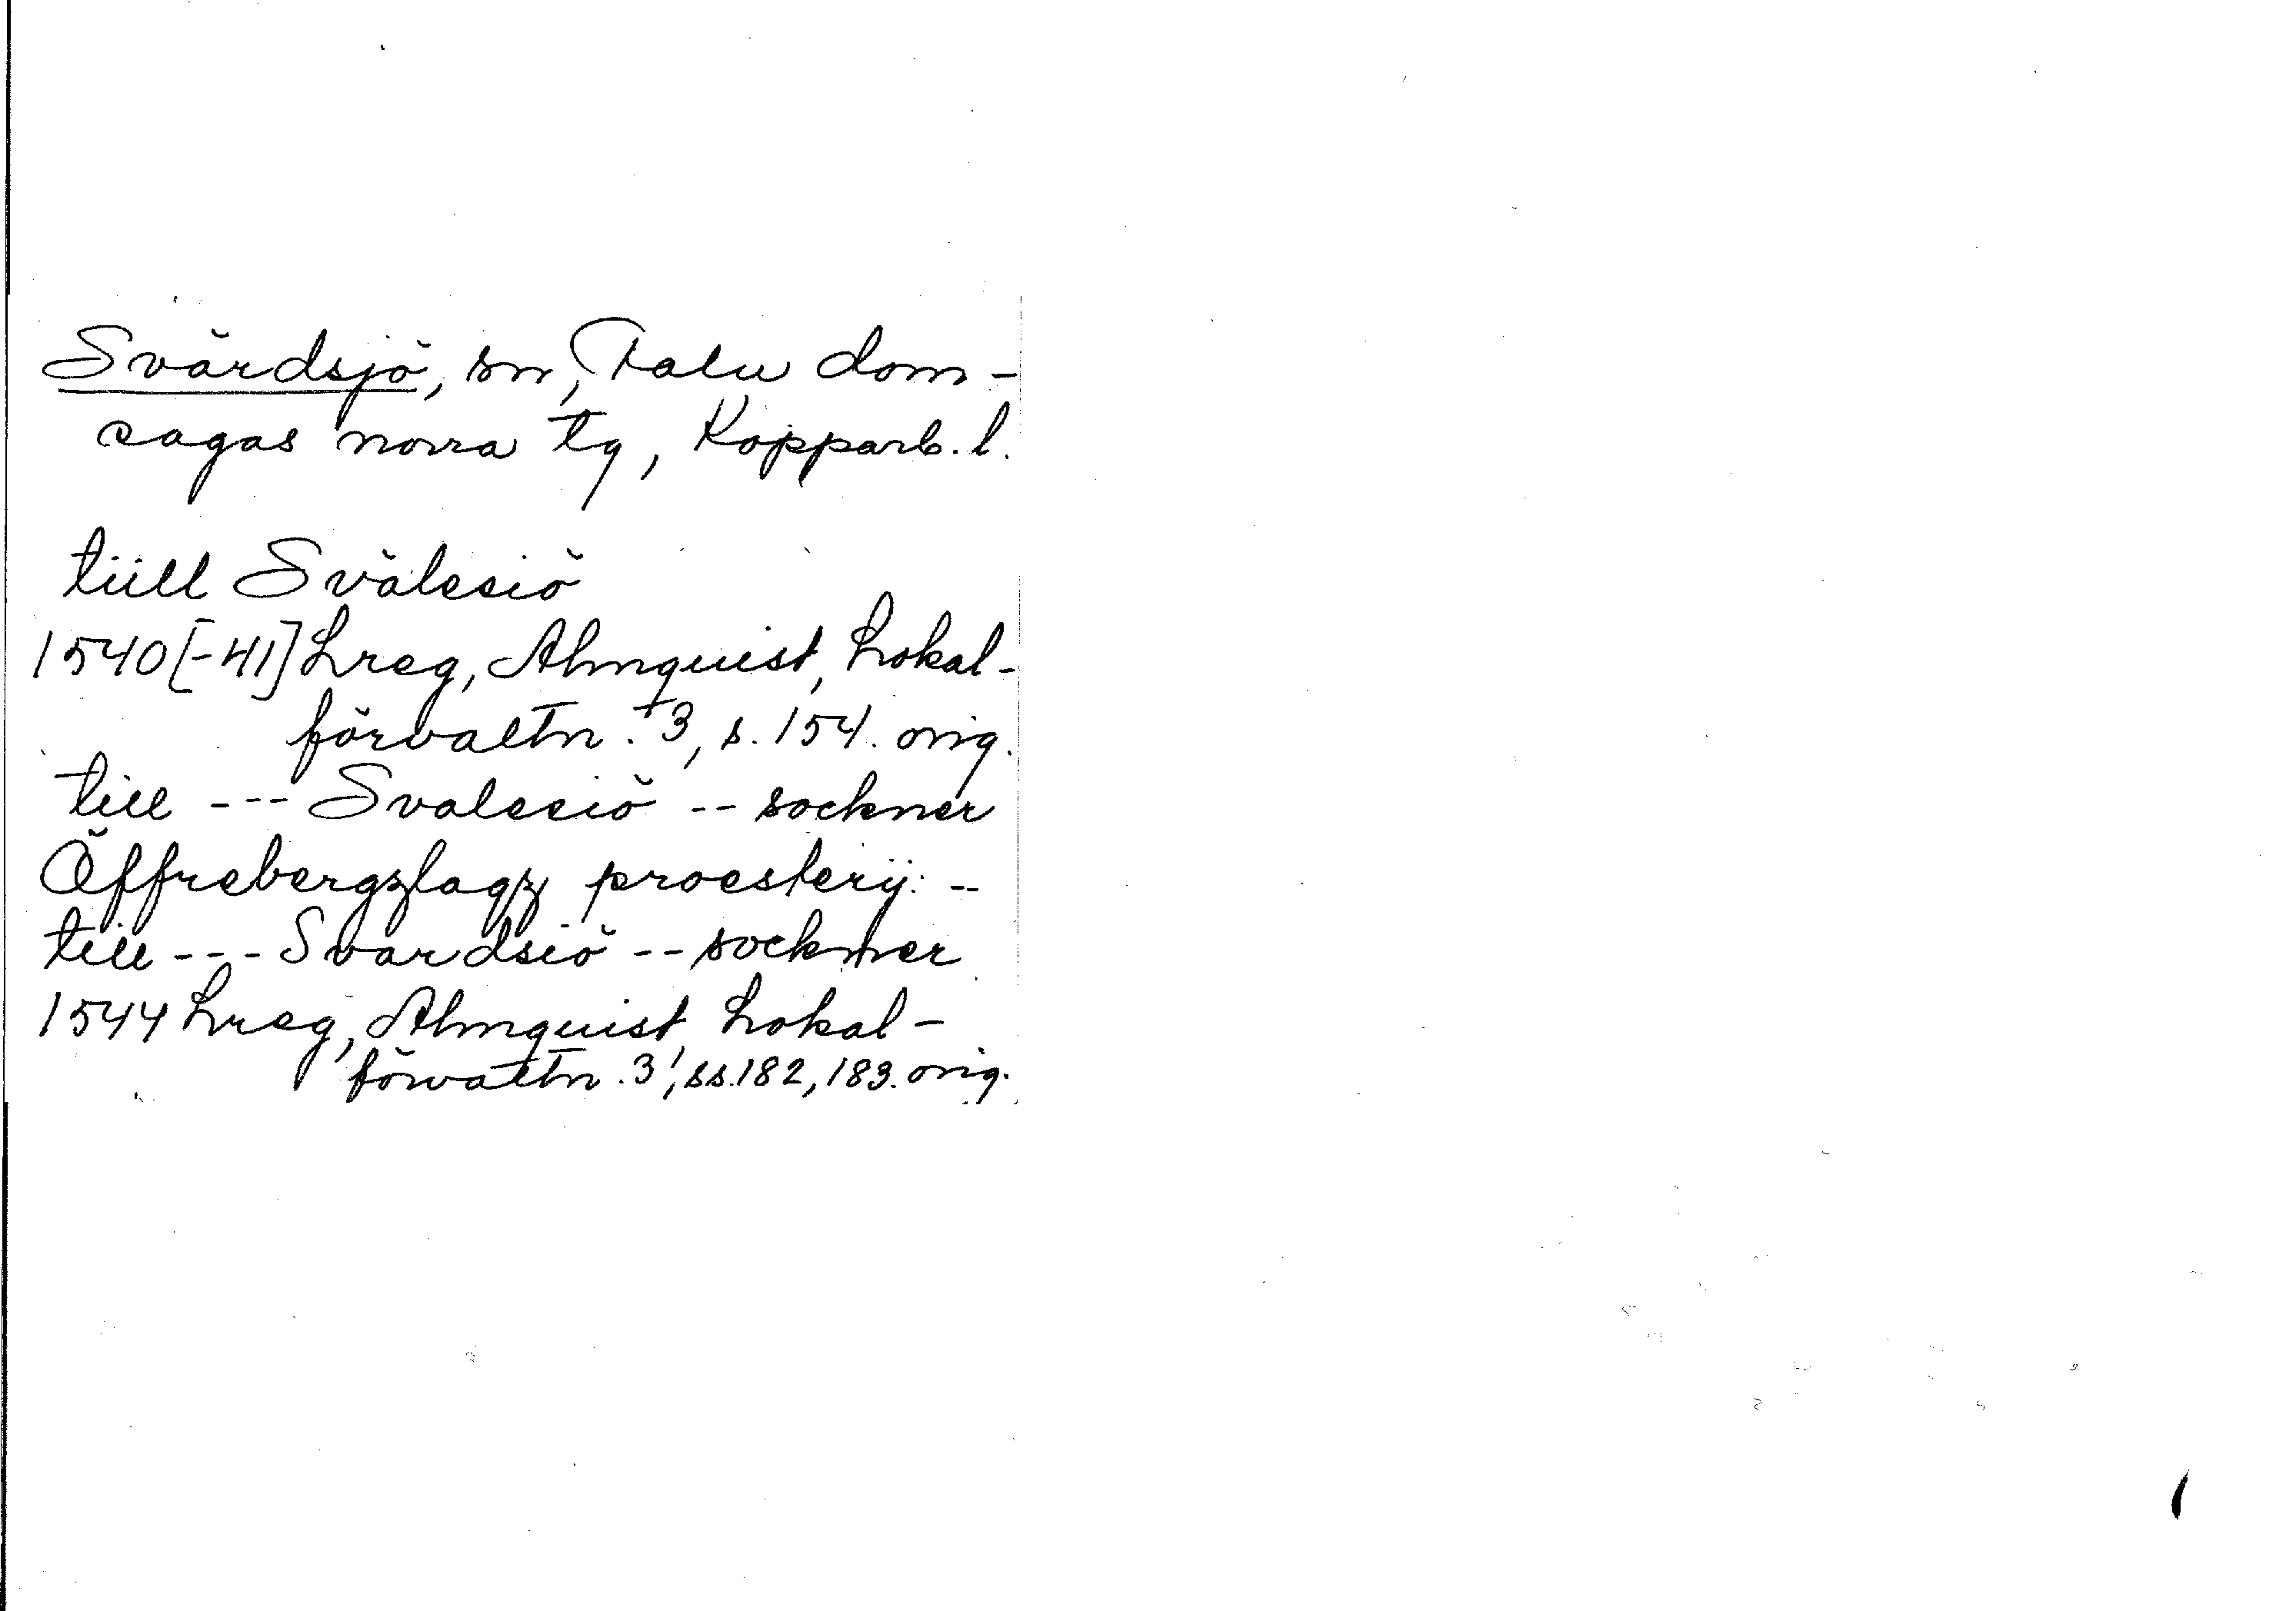 Svärdsjö, sn, Falu dom-
sagas norra tg, Kopparb. l.
tiill Svälesiö
1540[-41] Lreg, Almquist, Lokal-
förvaltn. 3, s. 154. orig.
till --- Svalesiö -- sockner
Öffrebergzlagz proesterij: --
till --- Svardsiö -- sockner
1544 Lreg, Almquist, Lokal-
förvaltn. 3, ss. 182, 183. orig.